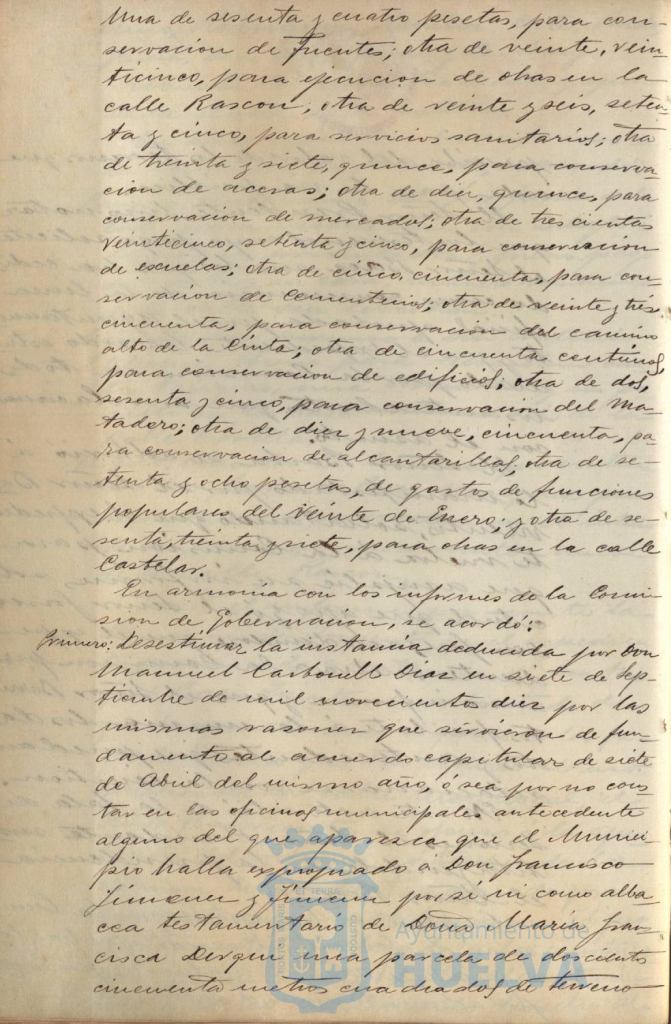 Una de sesenta y cuatro pesetas, para con-
servacion de Fuentes; otra de veinte, vein-
ticinco, para ejecucion de obras en la
calle Rascon; otra de veinte y seis, seten-
ta y cinco, para servicios sanitarios; otra
de treinta y siete, quince, para conserva-
cion de aceras; otra de diez, quince, para
conservacion de mercados; otra de trescientas
veinticinco, setenta y cinco, para conservacion
de escuelas; otra de cinco, cincuenta, para con-
servacion de Cementerios; otra de veinte y tres,
cincuenta, para conservacion del camino
alto de la Cinta; otra de cincuenta centimos,
para conservacion de edificios; otra de dos,
sesenta y cinco, para conservacion del Ma-
tadero; otra de diez y nueve, cincuenta, pa-
ra conservacion de alcantarillas; otra de se-
tenta y ocho pesetas, de gastos de funciones
populares del Veinte de Enero; y otra de se-
senta, treinta y siete, para obras en la calle
Castelar.
En armonia con los informes de la Comi-
sion de Gobernacion, se acordó:
Primero: Desestimar la instancia deducida por Don
Manuel Carbonell Diaz en siete de Sep-
tiembre de mil novecientos diez por las
mismas razones que sirvieron de fun-
damento al acuerdo capitular de siete
de Abril del mismo año, ó sea por no cons-
tar en las oficinas municipales antecedente
alguno del que aparezca que el Munici-
pio halla expropiado á Don Francisco
Jimenez y Jimenez por sí ni como alba-
cea testamentario de Doña Maria Fran-
cisca Derqui una parcela de doscientos
cincuenta metros cuadrados de terreno
Ayuntamiento de
HUELVA